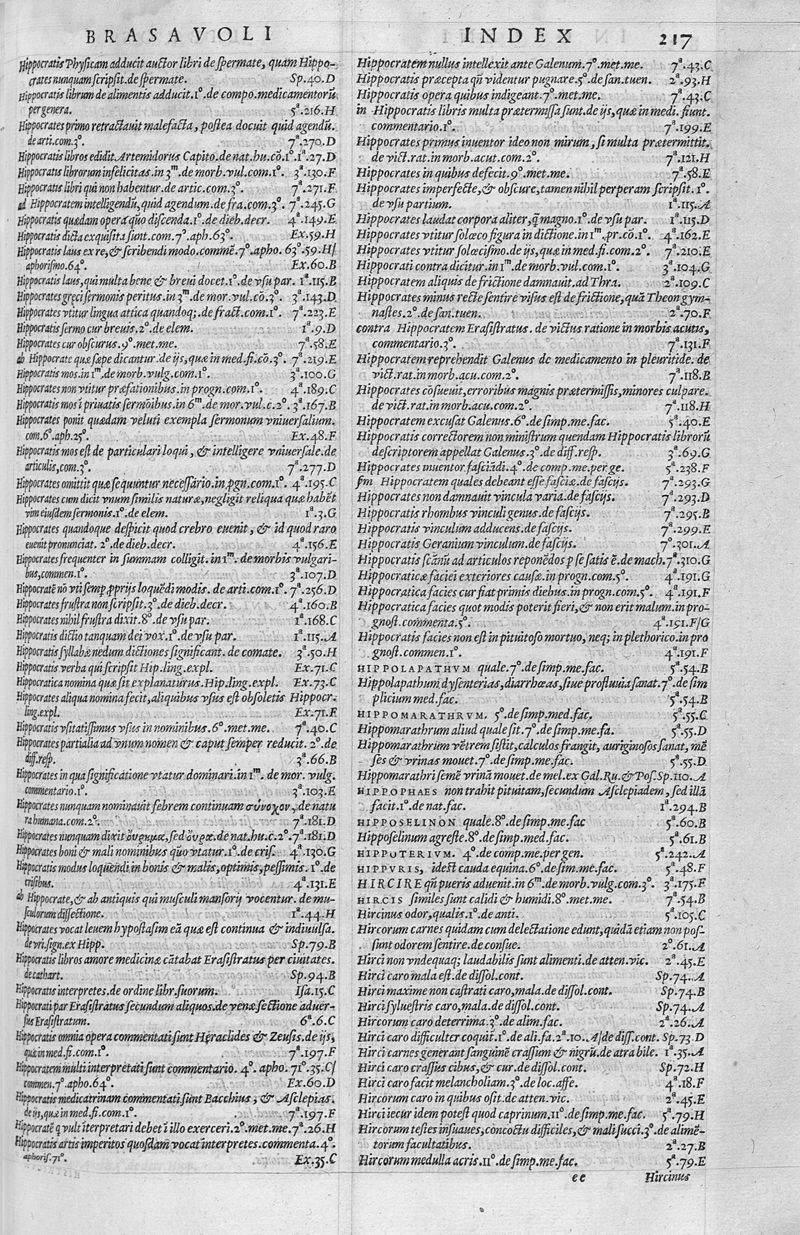 BRASAVOLI INDEX 217
Hippocratis Physicam adducit auctor libri de spermate, quam Hippo-
crates nunquam scripsit. de spermate. Sp.40.D
Hippocratis librum de alimentis adducit.1°. de compo.medicamentorũ
per genera. 5ª.216.H
Hippocrates primo retractauit malefacta, postea docuit quid agendũ.
de arti.com.3°. 7ª.270.D
Hippocratis libros edidit Artemidorus Capito.de nat.hu.cõ.1°.1ª.27.D
Hippocratis librorum infelicitas.in 3ᵐ.de morb.vul.com.1°. 3ª.130.F
Hippocratis libri qui non habentur.de artic.com.3°. 7ª.271.F
ad Hippocratem intelligendũ, quid agendum.de fra.com.3°. 7ª.245.G
Hippocratis quædam opera quo discenda.1°.de dieb.decr. 4ª.149.E
Hippocratis dicta exquisita sunt.com.7°.aph.63°. Ex.59.H
Hippocratis laus ex re, & scribendi modo.commẽ.7°.apho. 63°.59.H
aphorismo.64°. Ex.60.B
Hippocratis laus, qui multa bene & breui docet.1°.de vsu par.1ª.115.B
Hippocrates greci sermonis peritus.in 3ᵐ.de mor.vul.cõ.3°. 3ª.143.D
Hippocrates vtitur lingua attica quandoq;.de fract.com.1°. 7ª.223.E
Hippocratis sermo cur breuis.2°.de elem. 1ª.9.D
Hippocrates cur obscurus.9°.met.me. 7ª.58.E
ab Hippocrate quæ sæpe dicantur.de ijs, quæ in med.fi.cõ.3°. 7ª.219.E
Hippocratis mos.in 1ᵐ.de morb.vulg.com.1°. 3ª.100.G
Hippocrates non vtitur præfationibus.in progn.com.1°. 4ª.189.C
Hippocratis mos i priuatis sermõibus.in 6ᵐ.de mor.vul.c.2°. 3ª.167.B
Hippocrates ponit quædam veluti exempla sermonum vniuersalium.
com.6°.aph.25°. Ex.48.F
Hippocratis mos est de particulari loqui, & intelligere vniuersale.de
articulis,com.3°. 7ª.277.D
Hippocrates omittit quæ sequuntur necessario.in pgn.com.1°. 4ª.195.C
Hippocrates cum dicit vnum similis naturæ, negligit reliqua quæ habẽt
vim eiusdem sermonis.1°.de elem. 1ª.3.G
Hippocrates quandoque despicit quod crebro euenit, & id quod raro
euenit pronunciat. 2°.de dieb.decr. 4ª.156.E
Hippocrates frequenter in summam colligit.in 1ᵐ.de morbis vulgari-
bus,commen.1°. 3ª.107.D
Hippocratẽ nõ vti semp pprijs loquẽdi modis.de arti.com.1°. 7ª.256.D
Hippocrates frustra non scripsit.3°.de dieb.decr. 4ª.160.B
Hippocrates nihil frustra dixit.8°.de vsu par. 1ª.168.C
Hippocratis dictio tanquam dei vox.1°.de vsu par. 1ª.115.A
Hippocratis syllabæ nedum dictiones significant.de comate. 3ª.50.H
Hippocratis verba qui scripsit Hip.ling.expl. Ex.71.C
Hippocratica nomina quæ sit explanaturus.Hip.ling.expl. Ex.73.C
Hippocrates aliqua nomina fecit, aliquibus vsus est obsoletis Hippocr.
ling.expl. Ex.71.E
Hippocratis vsitatissimus vsus in nominibus.6°.met.me. 7ª.40.C
Hippocrates partialia ad vnum nomen & caput semper reducit.2°.de
diff.resp. 3ª.66.B
Hippocrates in qua significatione vtatur dominari.in 1ᵐ.de mor.vulg.
commentario.1°. 3ª.103.E
Hippocrates nunquam nominauit febrem continuam σύνοχον, de natu
ra humana.com.2°. 7ª.181.D
Hippocrates nunquam dixit ὄυρημα, sed ὄυρα.de nat.hu.c.2°.7ª.181.D
Hippocrates boni & mali nominibus quo vtatur.1°.de cris. 4ª.130.G
Hippocratis modus loquendi in bonis & malis, optimis, pessimis. 1°.de
crisibus. 4ª.131.E
ab Hippocrate, & ab antiquis qui musculi mansorij vocentur. de mu-
sculorum dissectione. 1ª.44.H
Hippocrates vocat leuem hypostasim eã quæ est continua & indiuulsa.
de vri.sign.ex Hipp. Sp.79.B
Hippocratis libros amore medicinæ cãtabat Erasistratus per ciuitates.
de cathart. Sp.94.B
Hippocratis interpretes.de ordine libr.suorum. Isa.15.C
Hippocrati par Erasistratus secundum aliquos.de venæ sectione aduer-
sus Erasistratum. 6ª.6.C
Hippocratis omnia opera commentati sunt Heraclides & Zeusis.de ijs,
quæ in med.fi.com.1°. 7ª.197.F
Hippocratem multi interpretati sunt commentario. 4°. apho. 71°.35.C
commen.7°.apho.64°. Ex.60.D
Hippocratis medicatrinam commentati sunt Bacchius, & Asclepias.
de ijs, quæ in med.fi.com.1°. 7ª.197.F
Hippocratẽ q vult iterpretari debet i illo exerceri.2°.met.me.7ª.26.H
Hippocratis artis imperitos quosdam vocat interpretes.commenta.4°.
aphoris.71°. Ex.35.C
Hippocratem nullus intellexit ante Galenum.7°.met.me. 7ª.43.C
Hippocratis præcepta qñ videntur pugnare.5°.de san.tuen. 2ª.93.H
Hippocratis opera quibus indigeant.7°.met.me. 7ª.43.C
in Hippocratis libris multa prætermissa sunt.de ijs, quæ in medi.fiunt.
commentario.1°. 7ª.199.E
Hippocrates primus inuentor ideo non mirum, si multa prætermittit.
de vict.rat.in morb.acut.com.2°. 7ª.121.H
Hippocrates in quibus defecit.9°.met.me. 7ª.58.E
Hippocrates imperfecte, & obscure, tamen nihil perperam scripsit.1°.
de vsu partium. 1ª.115.A
Hippocrates laudat corpora aliter, q̃ magno.1°.de vsu par. 1ª.115.D
Hippocrates vtitur solœco figura in dictione.in 1ᵐ.pr.cõ.1°. 4ª.162.E
Hippocrates vtitur solœcismo.de ijs, quæ in med.fi.com.2°. 7ª.210.E
Hippocrati contra dicitur.in 1ᵐ.de morb.vul.com.1°. 3ª.104.G
Hippocratem aliquis de frictione damnauit.ad Thra. 2ª.109.C
Hippocrates minus recte sentire visus est de frictione, quã Theon gym-
nastes.2°.de san.tuen. 2ª.70.F
contra Hippocratem Erasistratus. de victus ratione in morbis acutis,
commentario.3°. 7ª.131.F
Hippocratem reprehendit Galenus de medicamento in pleuritide. de
vict.rat.in morb.acu.com.2°. 7ª.118.B
Hippocrates cõsueuit, erroribus magnis prætermissis, minores culpare.
de vict.rat.in morb.acu.com.2°. 7ª.118.H
Hippocratem excusat Galenus.6°.de simp.me.fac. 5ª.40.E
Hippocratis correctorem non ministrum quendam Hippocratis librorũ
descriptorem appellat Galenus.3°.de diff.resp. 3ª.69.G
Hippocrates inuentor fasciãdi.4°.de comp.me.per ge. 5ª.238.F
sm Hippocratem quales debeant esse fasciæ.de fascijs. 7ª.293.G
Hippocrates non damnauit vincula varia.de fascijs. 7ª.293.D
Hippocratis rhombus vinculi genus.de fascijs. 7ª.295.B
Hippocratis vinculum adducens.de fascijs. 7ª.299.E
Hippocratis Geranium vinculum.de fascijs. 7ª.301.A
Hippocratis scãnũ ad articulos reponẽdos p se satis ẽ.de mach.7ª.310.G
Hippocraticæ faciei exteriores causæ.in progn.com.5°. 4ª.191.G
Hippocratica facies cur fiat primis diebus.in progn.com.5°. 4ª.191.F
Hippocratica facies quot modis poterit fieri, & non erit malum.in pro-
gnost.commenta.5°. 4ª.151.F/G
Hippocratis facies non est in pituitoso mortuo, neq; in plethorico.in pro
gnost.commen.1°. 4ª.191.F
HIPPOLAPATHVM quale.7°.de simp.me.fac. 5ª.54.B
Hippolapathum dysenterias, diarrhœas, siue profluuia sanat.7°.de sim
plicium med.fac. 5ª.54.B
HIPPOMARATHRVM.5°.de simp.med.fac. 5ª.55.C
Hippomarathrum aliud quale sit.7°.de simp.me.fa. 5ª.55.D
Hippomarathrum vẽtrem sistit, calculos frangit, auriginosos sanat, mẽ
ses & vrinas mouet.7°.de simp.me.fac. 5ª.55.D
Hippomarathri semẽ vrinã mouet.de mel.ex Gal.Ru.& Pos.Sp.110.A
HIPPOPHAES non trahit pituitam, secundum Asclepiadem, sed illã
facit.1°.de nat.fac. 1ª.294.B
HIPPOSELINON quale.8°.de simp.me.fac 5ª.60.B
Hipposelinum agreste.8°.de simp.med.fac. 5ª.61.B
HIPPOTERIVM. 4°.de comp.me.per gen. 5ª.242.A
HIPPVRIS, idest cauda equina.6°.de sim.me.fac. 5ª.48.F
HIRCIRE qñ pueris aduenit.in 6ᵐ.de morb.vulg.com.3°. 3ª.175.F
HIRCIS similes sunt calidi & humidi.8°.met.me. 7ª.54.B
Hircinus odor, qualis.1°.de anti. 5ª.105.C
Hircorum carnes quidam cum delectatione edunt, quidã etiam non pos-
sunt odorem sentire.de consue. 2ª.61.A
Hirci non vndequaq; laudabilis sunt alimenti.de atten.vic. 2ª.45.E
Hirci caro mala est.de dissol.cont. Sp.74.A
Hirci maxime non castrati caro, mala.de dissol.cont. Sp.74.B
Hirci syluestris caro, mala.de dissol.cont. Sp.74.A
Hircorum caro deterrima.3°.de alim.fac. 2ª.26.A
Hirci caro difficulter coquit.1°.de ali.fa.2ª.10.A/de diss.cont.Sp.73.D
Hirci carnes generant sanguinẽ crassum & nigrũ.de atra bile. 1ª.35.A
Hirci caro crassus cibus, & cur.de dissol.cont. Sp.72.H
Hirci caro facit melancholiam.3°.de loc.affe. 4ª.18.F
Hircorum caro in quibus osit.de atten.vic. 2ª.45.E
Hirci iecur idem potest quod caprinum.11°.de simp.me.fac. 5ª.79.H
Hircorum testes insuaues, concoctu difficiles, & mali succi.3°.de alimẽ-
torum facultatibus. 2ª.27.B
Hircorum medulla acris.11°.de simp.me.fac. 5ª.79.E
ee Hircinus